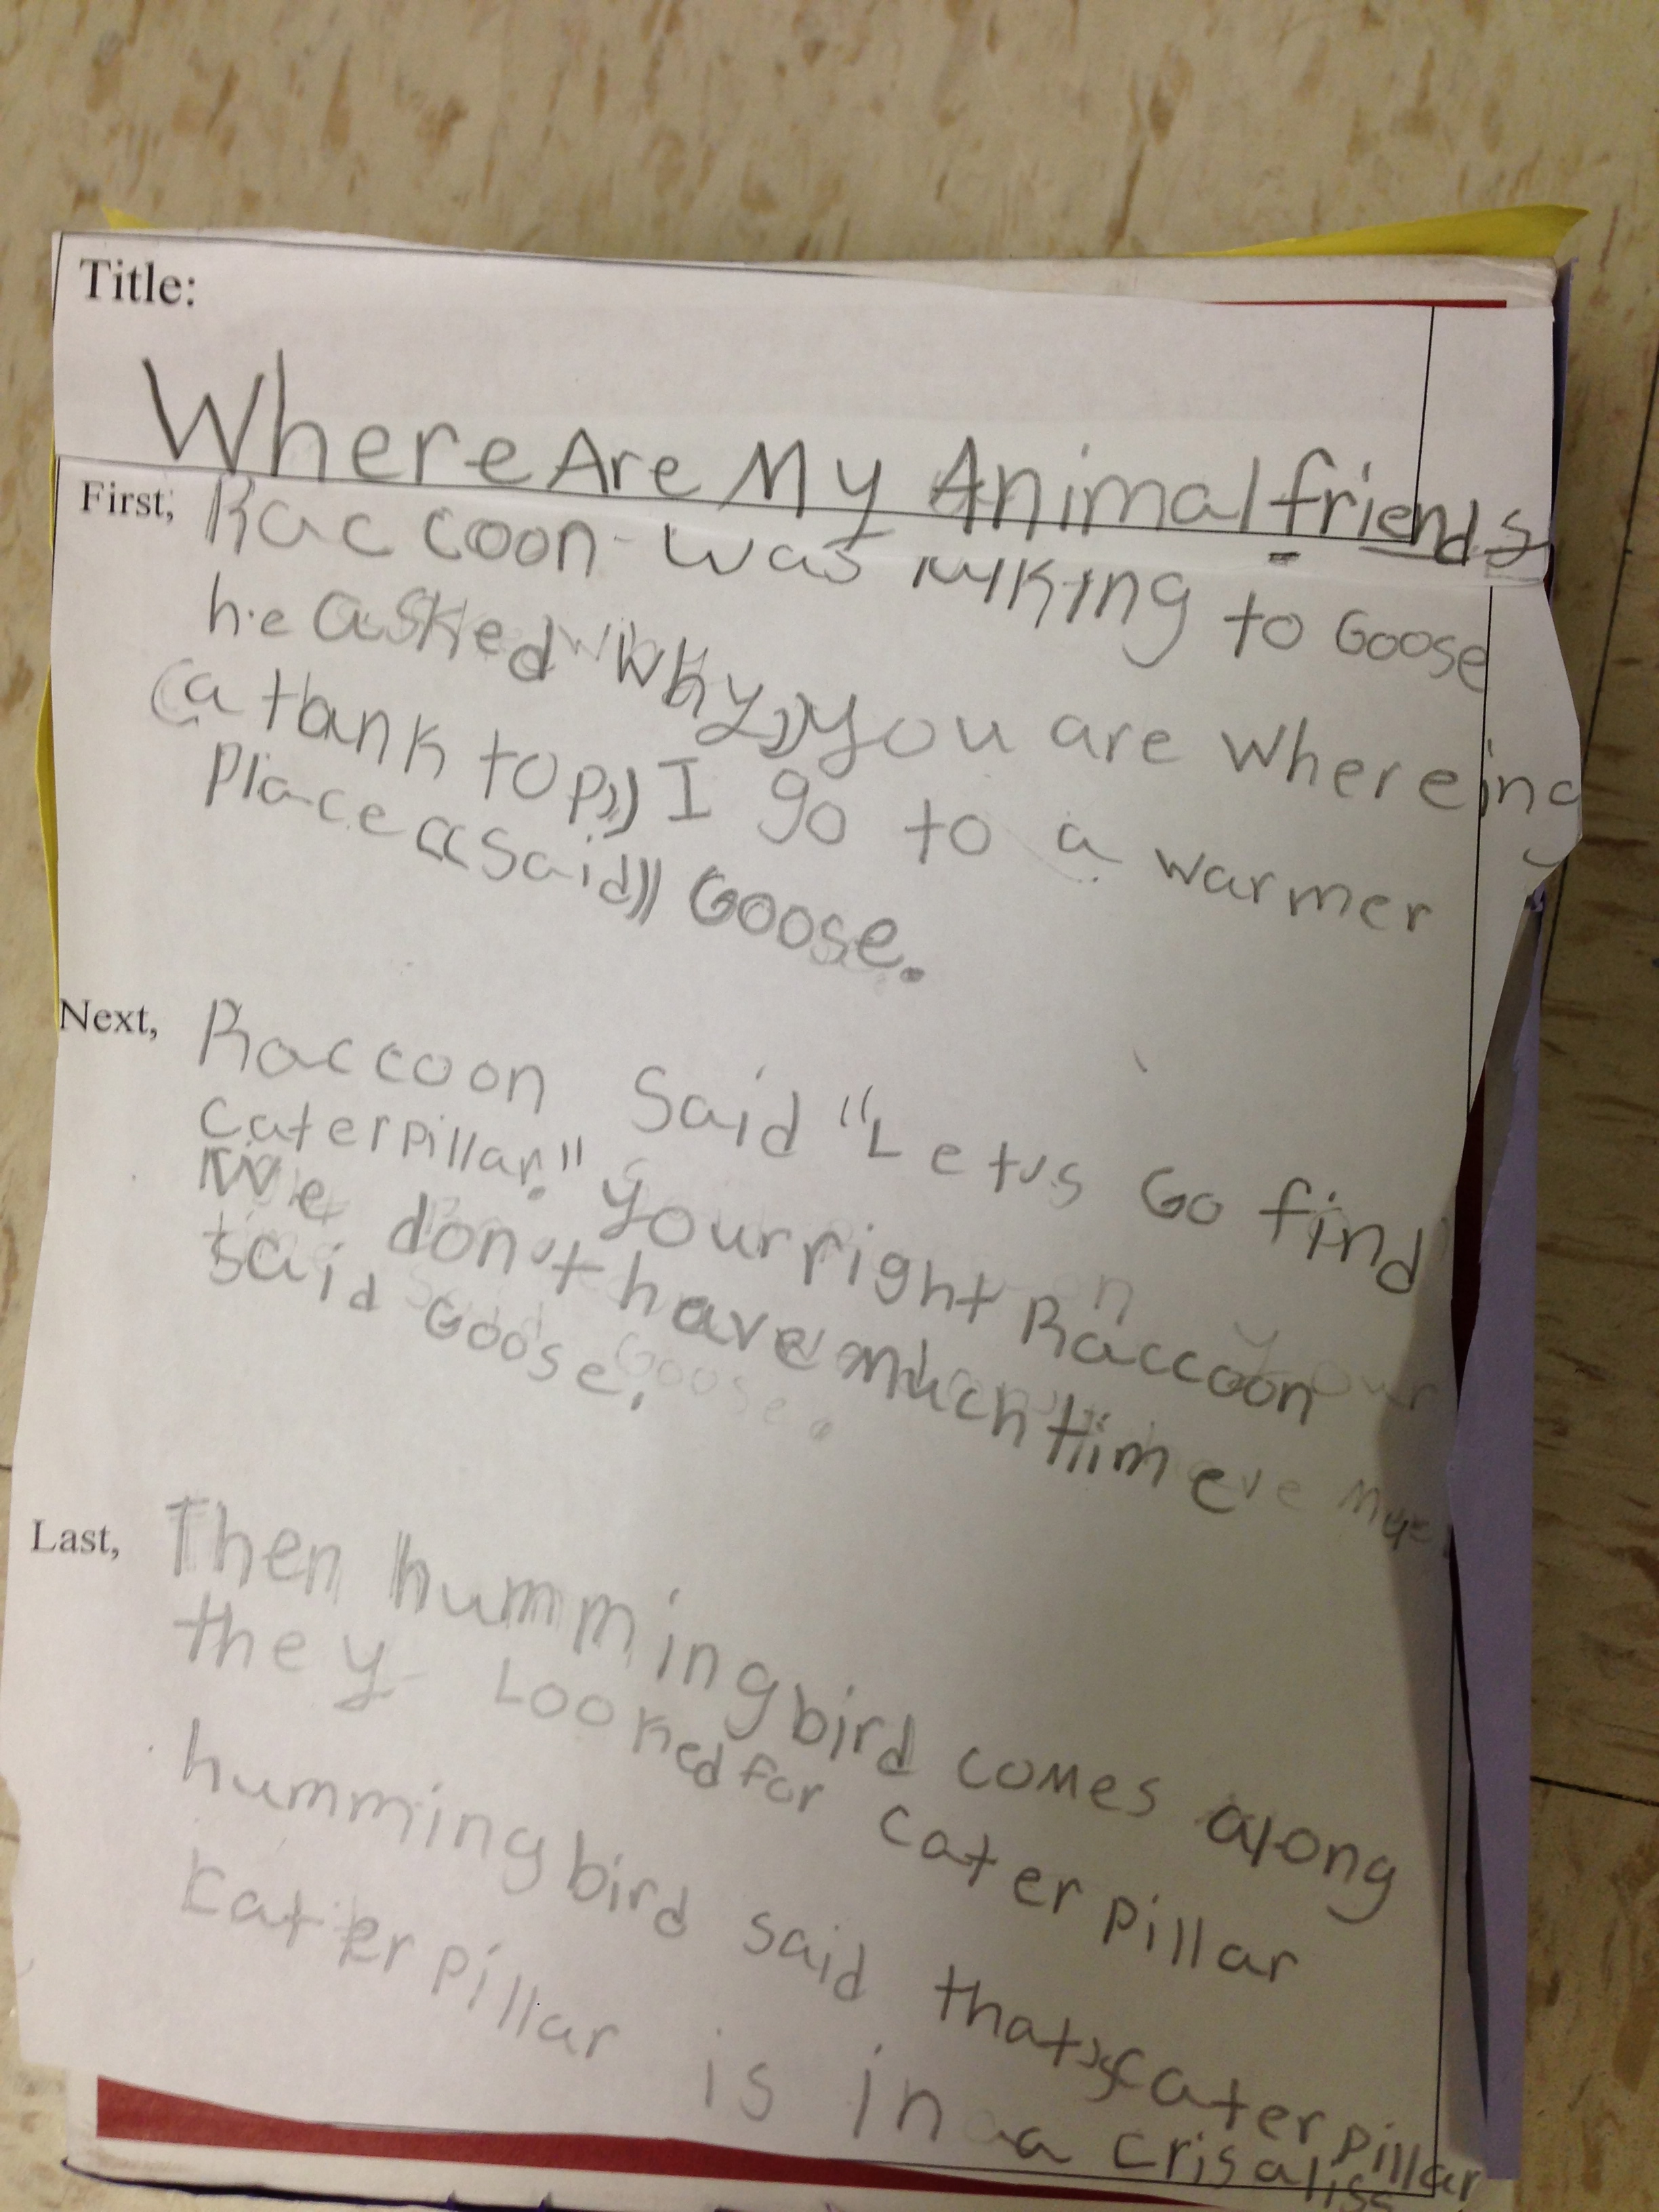 Title:
Where Are My Animal friends
First, Raccoon was talking to Goose
he asked why,"you are whereing
(a thank top,)) I go to a warmer
place "said" Goose.
Next, Raccoon Said "Let's Go find
caterpillar." your right Raccoon
We don't have much time
said Goose.
Last, Then hummingbird comes along
they Looked for caterpillar
hummingbird said that's caterpillar
caterpillar is in a crisaliss